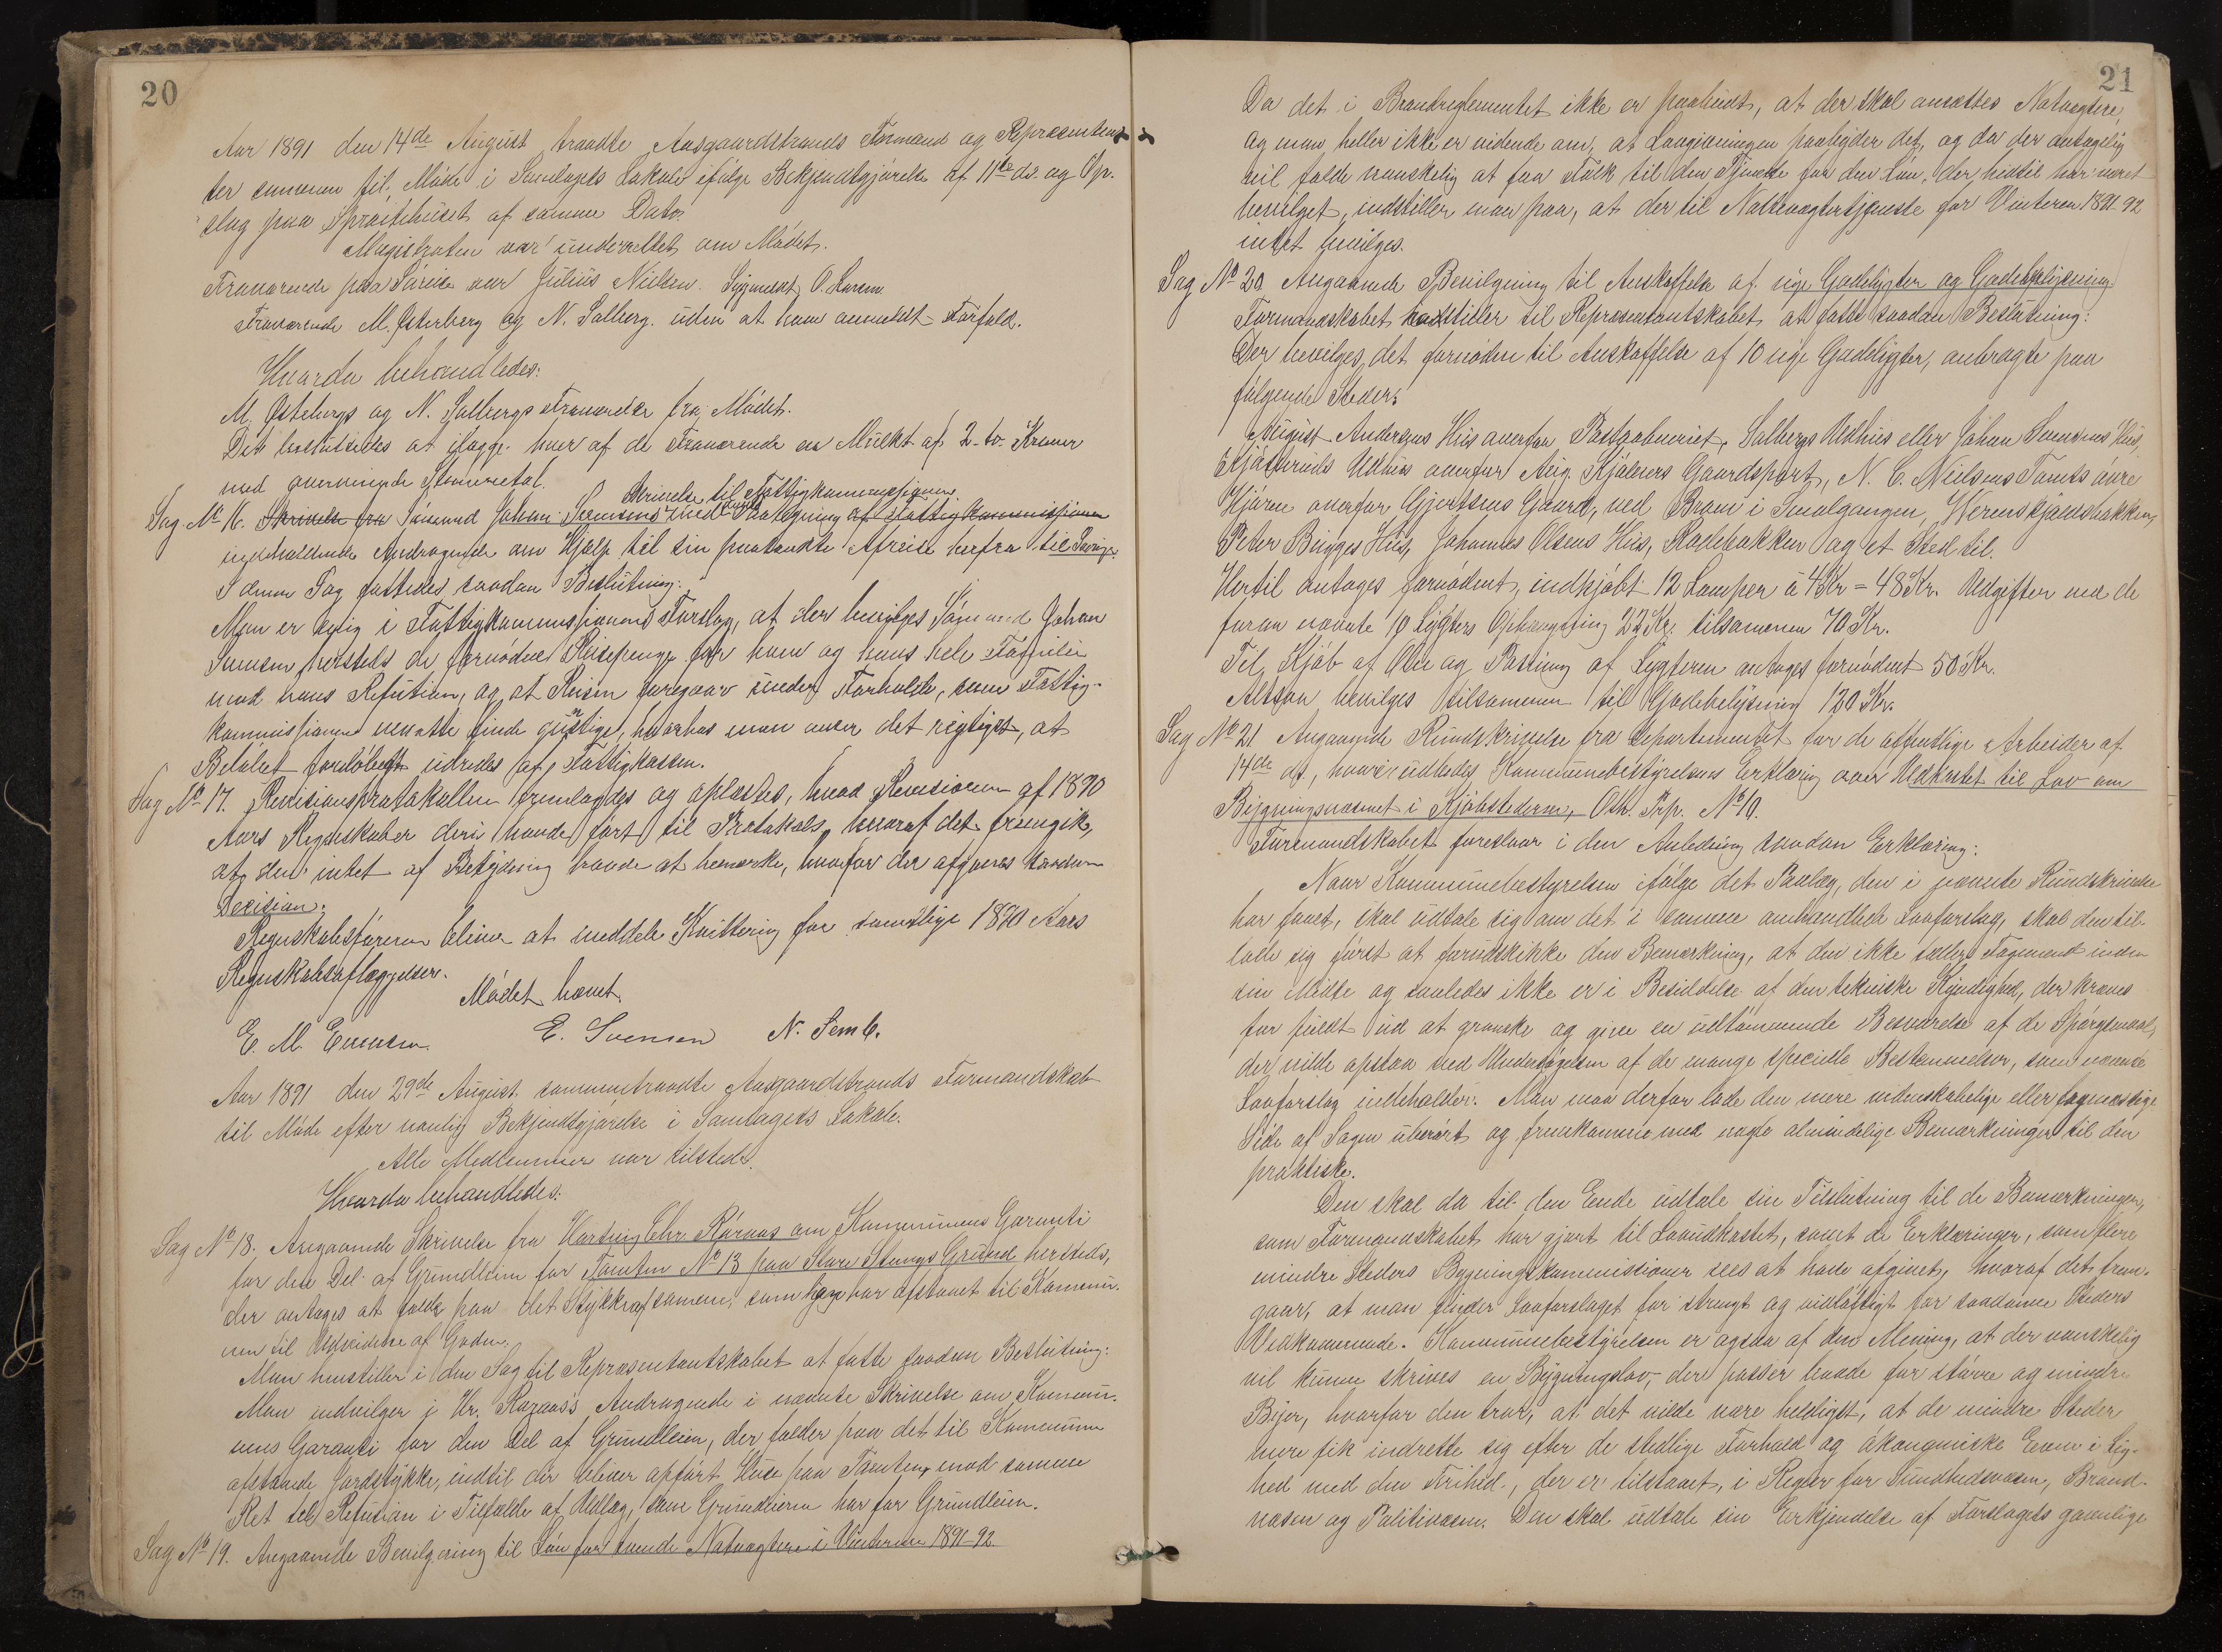 20
Aar 1891 den 14de August traadte Aasgaardstrands Formænd og Repræsentan-
ter sammen til Møde i Samlagets Lokale ifølge Bekjendtgjørelse af 11te ds. og Op-
slag paa Sprøitehuset af samme Dato.
Magistraten var underrettet om Mødet.
Fraværende paa Søreise var Julius Nielsen. Sygmeldt O. Larsen.
Fraværende M. Østerberg og N. Solberg. uden at have anmeldt Forfald.
Hvorda behandledes:
M. Østebergs og N. Solbergs Fraværelse fra Mødet.
Det besluttedes at ilægge hver af de Fraværende en Mulkt af 2 - to - Kroner
med overveiende Stemmetal.
Skrivelse til Fattigkommissionen
Sag No 16. Skrivelse fra Sømand Johan Svensens med Paategning af Fattigkommissionen
indeholdende Andragende om Hjælp til sin paatænkte Afreise herfra til Sverige.
I denne Sag fattedes saadan Beslutning:
Man er enig i Fattigkommissionens Forslag, at der bevilges Sømand Johan
Svensen hersteds de fornødne Reisepenge for ham og hans hele Familie
mod hans Refusion, og at Reisen foregaar under Forholde, som Fattig-
kommissionen maatte finde gunstige, hvorhos man anser det rigtigst, at
Beløbet forløbigt udredes af Fattigkassen.
Sag No 17. Revisionsprotokollen fremlagdes og oplæstes, hvad Revisionen af 1890
Aars Regnskaber deri havde ført til Protokols, hvoraf det fremgik,
at den intet af Betydning havde at bemærke, hvorfor der afgaves saadan
Decision:
Regnskabsføreren bliver at meddele Kvittering for samtlige 1890 Aars
Regnskabsaflæggelser.
Mødet hævet.
E. M. Evensen. E. Svensen N. Semb.
Aar 1891 den 29de August sammentraadte Aasgaardstrands Formandskab
til Møde efter vanlig Bekjendtgjørelse i Samlagets Lokale.
Alle Medlemmer var tilstede.
Hvorda behandledes:
Sag No 18. Angaaende Skrivelse fra Hartvig Chr. Røraas om Kommunens Garanti
for den Del af Grundleien for Tomten No 13 paa Store Stangs Grund hersteds,
der antages at falde paa det Stykke af samme, som han har afstaaet til Kommu-
nen til Udvidelse af Gaden.
Man henstiller i den Sag til Repræsentantskabet at fatte saadan Beslutning:
Man indvilger i Hr. Røraas's Andragende i nævnte Skrivelse om Kommu-
nens Garanti for den Del af Grundleien, der falder paa det til Kommunen
afstaaede Jordstykke, indtil der bliver opført Huse paa Tomten mod samme
Ret til Refusion i Tilfælde af Udlæg, som Grundeieren har for Grundleien.
Sag No 19. Angaaende Bevilgning til Løn for tvende Natvægtere i Vinteren 1891-92.
21
Da det i Brandreglementet ikke er paabudt, at der skal ansættes Natvægtere,
og man heller ikke er vidende om, at Lovgivningen paabyder det, og da der antagelig
vil falde vanskelig at faa Folk til den Tjeneste for den Løn, der hidtil har været
bevilget, indstiller man paa, at der til Natvægtertjeneste for Vinteren 1891-92
intet bevilges.
Sag No 20. Angaaende Bevilgning til Anskaffelse af nye Gadelygter og Gadebelysning.
Formandskabet indstiller til Repræsentantskabet at fatte saadan Beslutning:
Der bevilges det fornødne til Anskaffelse af 10 nye Gadelygter, anbragte paa
følgende Steder:
August Andersens Hus overfor Postaabneriet, Solbergs Udhus eller Johan Svensens Hus,
Kjøtteruds Udhus overfor Aug. Kjølners Gaardsport, N. C. Nielsens Tomts øvre
Hjørne overfor Gjertsens Gaard, ved Broen i Smalgangen, Werenskjoldsbakken,
Peter Bugges Hus, Johannes Olsens Hus, Rødebakken og et Sted til.
Hertil antages fornødent, indkjøbt 12 Lamper à 4 Kr = 48 Kr. Udgifter med de
foran nævnte 10 Lygters Ophængning 22 Kr. tilsammen 70 Kr.
Til Kjøb af Olie og Pasning af Lygterne antages fornødent 50 Kr.
Altsaa bevilges tilsammen til Gadebelysning 120 Kr.
Sag No 21 Angaaende Rundskrivelse fra Departementet for de offentlige Arbeider af
14de ds., hvori udbedes Kommunebestyrelsens Erklæring over Udkastet til Lov om
Bygningsvæsenet i Kjøbstederne, Oth. Prp. No 10.
Formandskabet foreslaar i den Anledning saadan Erklæring:
Naar Kommunebestyrelsen ifølge det Paalæg, den i nævnte Rundskrivelse
har faaet, skal udtale sig om det i samme omhandlede Lovforslag, skal den til-
lade sig først at forudskikke den Bemærkning, at den ikke tæller Fagmænd inden
sin Midte og saaledes ikke er i Besiddelse af den tekniske Kyndighed, der kræves
for fuldt ud at granske og give en udtømmende Besvarelse af de Spørgsmaal,
der vilde opstaa ved Undersøgelsen af de mange specielle Bestemmelser, som nævnte
Lovforslag indeholder. Man maa derfor lade den mere videnskabelige eller fagmæssige
Side af Sagen uberørt og fremkomme med nogle almindelige Bemærkninger til den
praktiske.
Den skal da til den Ende udtale sin Tilslutning til de Bemærkninger,
som Formandskabet har gjort til Lovudkastet, samt de Erklæringer, som flere
mindre Steders Bygningskommissioner sees at have afgivet, hvoraf det frem-
gaar, at man finder Lovforslaget for strengt og vidløftigt for saadanne Steders
Vedkommende. Kommunebestyrelsen er ogsaa af den Mening, at der vanskelig
vil kunne skrives en Bygningslov, der passer baade for større og mindre
Byer, hvorfor den tror, at det vilde være heldigst, at de mindre Steder
mere fik indrette sig efter de stedlige Forhold og økonomiske Evne i Lig-
hed med den Frihed, der er tilstaaet, i Regler for Sundhedsvæsen, Brand-
væsen og Politivæsen. Den skal udtale sin Erkjendelse af Forslagets gavnlige